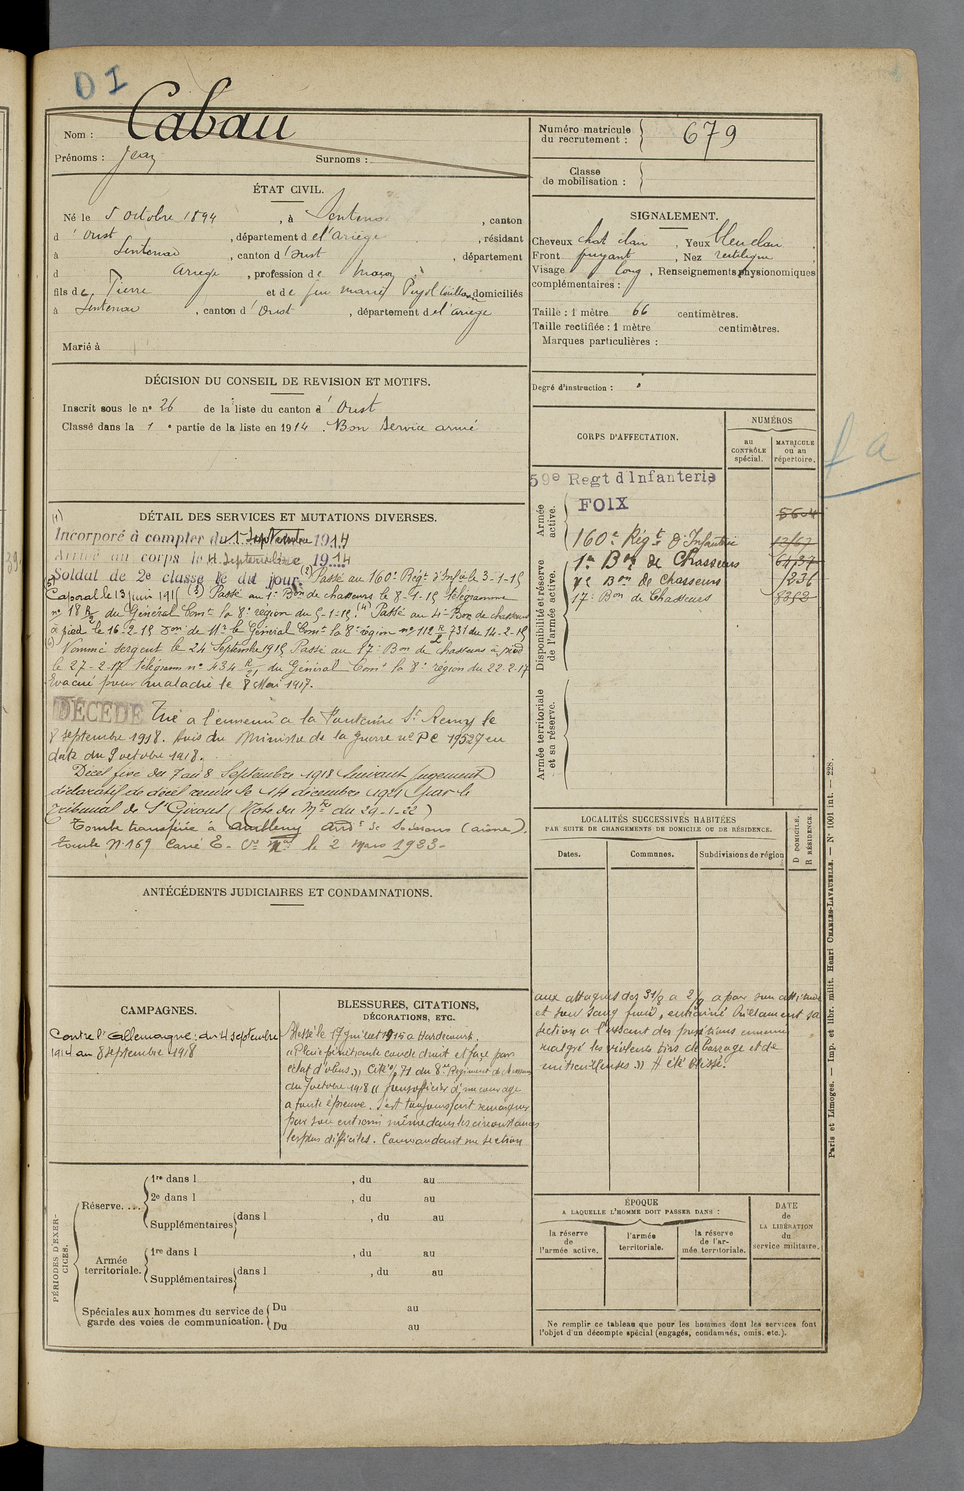 D I
Nom : Cabau
Prénoms : Jean Surnoms :
ÉTAT CIVIL.
Né le 5 octobre 1894, à Sentenac, canton
d'Oust, département de l'Ariège, résidant
à Sentenac, canton d'Oust, département
d Ariège, profession de maçon
fils de Pierre et de feu Marie Pujol domiciliés
à Sentenac, canton d'Oust, département de l'Ariège
Marié à
DÉCISION DU CONSEIL DE REVISION ET MOTIFS.
Inscrit sous le n° 26 de la liste du canton d'Oust
Classé dans la 1e partie de la liste en 1914. Bon service armé
DÉTAIL DES SERVICES ET MUTATIONS DIVERSES.
(1) Incorporé à compter du 1 Septembre 1914
Arrivé au corps le 4 Septembre 1914
Soldat de 2e classe le dit jour. (2) Passé au 160e Régt d'Infie le 3-1-15
(5) Caporal le 13 juin 1915 (3) Passé au 1er Bon de chasseurs le 8-1-15 télégramme
n° 18 R/2 du Général Comt la 8e région du 5-1-15. (4) Passé au 4e Bon de chasseurs
à pied le 16-2-15 Don de Mr le Général Comt la 8e région n° 112 R/2 731 du 14-2-15
(6) Nommé sergent le 24 Septembre 1915 Passé au 17e Bon de chasseurs à pied
le 27-2-17 télégramme n° 434 du Général Comt la 8e région du 22-2-17
Evacué pour maladie le 8 Mai 1917.
DÉCÉDÉ Tué à l'ennemi à la Fontaine St Remy le
8 septembre 1918. Avis du Ministre de la guerre n° PC 19527 en
date du 9 octobre 1918.
Décès fixé du 7 au 8 Septembre 1918 Suivant jugement
déclaratif de décès rendu le 14 décembre 1921 par le
tribunal de St Girons (Note du Mre du 29-1-22)
Tombe transférée à Ambleny arrt de Soissons (Aisne).
tombe N° 169 Carré E. le 2 mars 1923.
ANTÉCÉDENTS JUDICIAIRES ET CONDAMNATIONS.
CAMPAGNES.
Contre l'Allemagne : du 4 septembre
1914 au 8 septembre 1918
BLESSURES, CITATIONS,
DÉCORATIONS, ETC.
Blessé le 17 juillet 1915 à
"Plaie pénétrante coude droit et face par
éclat d'obus." Cité o/ 71 du 8e Régiment de chasseurs
du 7 octobre 1918 "Sous officier d'un courage
à toute épreuve. S'est toujours fait remarquer
par son entrain même dans les circonstances
les plus difficiles. Commandant une section
aux attaques des 31/8 a 2/9 a par son attitude
et son sang froid, entraîné brillament sa
section à l'assaut des positions ennemies
malgré les violents tirs de barrage et de
mitrailleuses." A été blessé.
PÉRIODES D'EXERCICES.
Réserve....
1re dans l , du au
2e dans l , du au
Supplémentaires dans l , du au
Armée territoriale.
1re dans l , du au
Supplémentaires dans l , du au
Spéciales aux hommes du service de garde des voies de communication.
Du au
Du au
Numéro matricule du recrutement : 679
Classe de mobilisation :
SIGNALEMENT.
Cheveux chat clair, Yeux bleu clair
Front fuyant, Nez rectiligne
Visage long, Renseignements physionomiques
complémentaires :
Taille : 1 mètre 66 centimètres.
Taille rectifiée : 1 mètre centimètres.
Marques particulières :
Degré d'instruction :
CORPS D'AFFECTATION.
NUMÉROS
au CONTRÔLE spécial.
MATRICULE ou au répertoire.
Armée active.
59e Regt d'Infanterie
FOIX
160e Régt d'Infanterie
1er Bon de Chasseurs
4e Bon de Chasseurs
17e Bon de Chasseurs
fa
Disponibilité et réserve de l'armée active.
Armée territoriale et sa réserve.
LOCALITÉS SUCCESSIVES HABITÉES
PAR SUITE DE CHANGEMENTS DE DOMICILE OU DE RÉSIDENCE.
Dates. Communes. Subdivisions de région
D DOMICILE.
R RÉSIDENCE.
ÉPOQUE
A LAQUELLE L'HOMME DOIT PASSER DANS :
la réserve de l'armée active.
l'armée territoriale.
la réserve de l'armée territoriale.
DATE de LA LIBÉRATION du service militaire.
Ne remplir ce tableau que pour les hommes dont les services font
l'objet d'un décompte spécial (engagés, condamnés, omis, etc.).
Paris et Limoges. — Imp. et libr. milit. Henri CHARLES-LAVAUZELLE. — N° 1001 int. — 228.